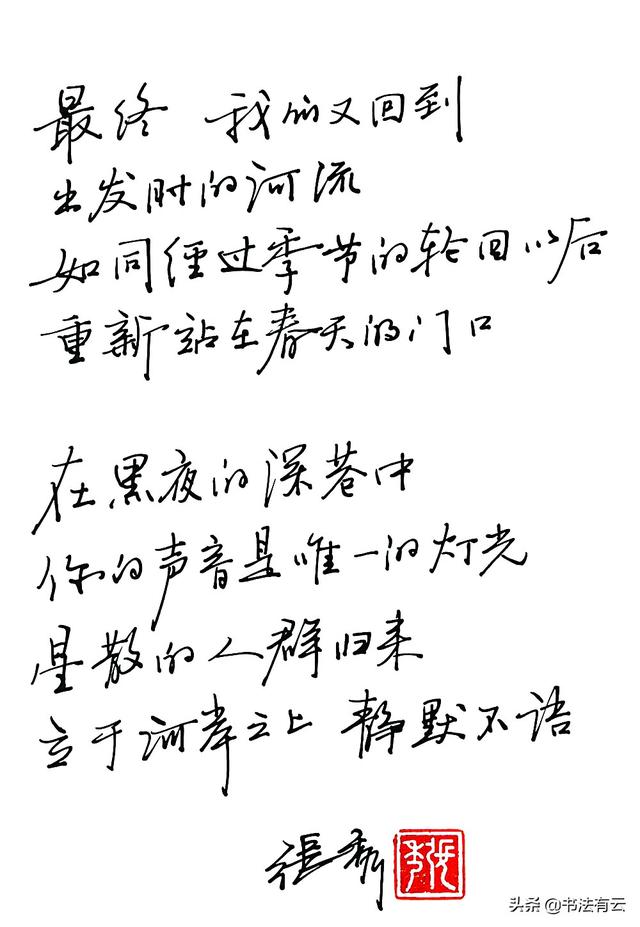 最终 我们又回到
出发时的河流
如同经过季节的轮回以后
重新站在春天的门口
在黑夜的深巷中
你的声音是唯一的灯光
星散的人群归来
立于河岸之上 静默不语
張秀
头条 @书法有云